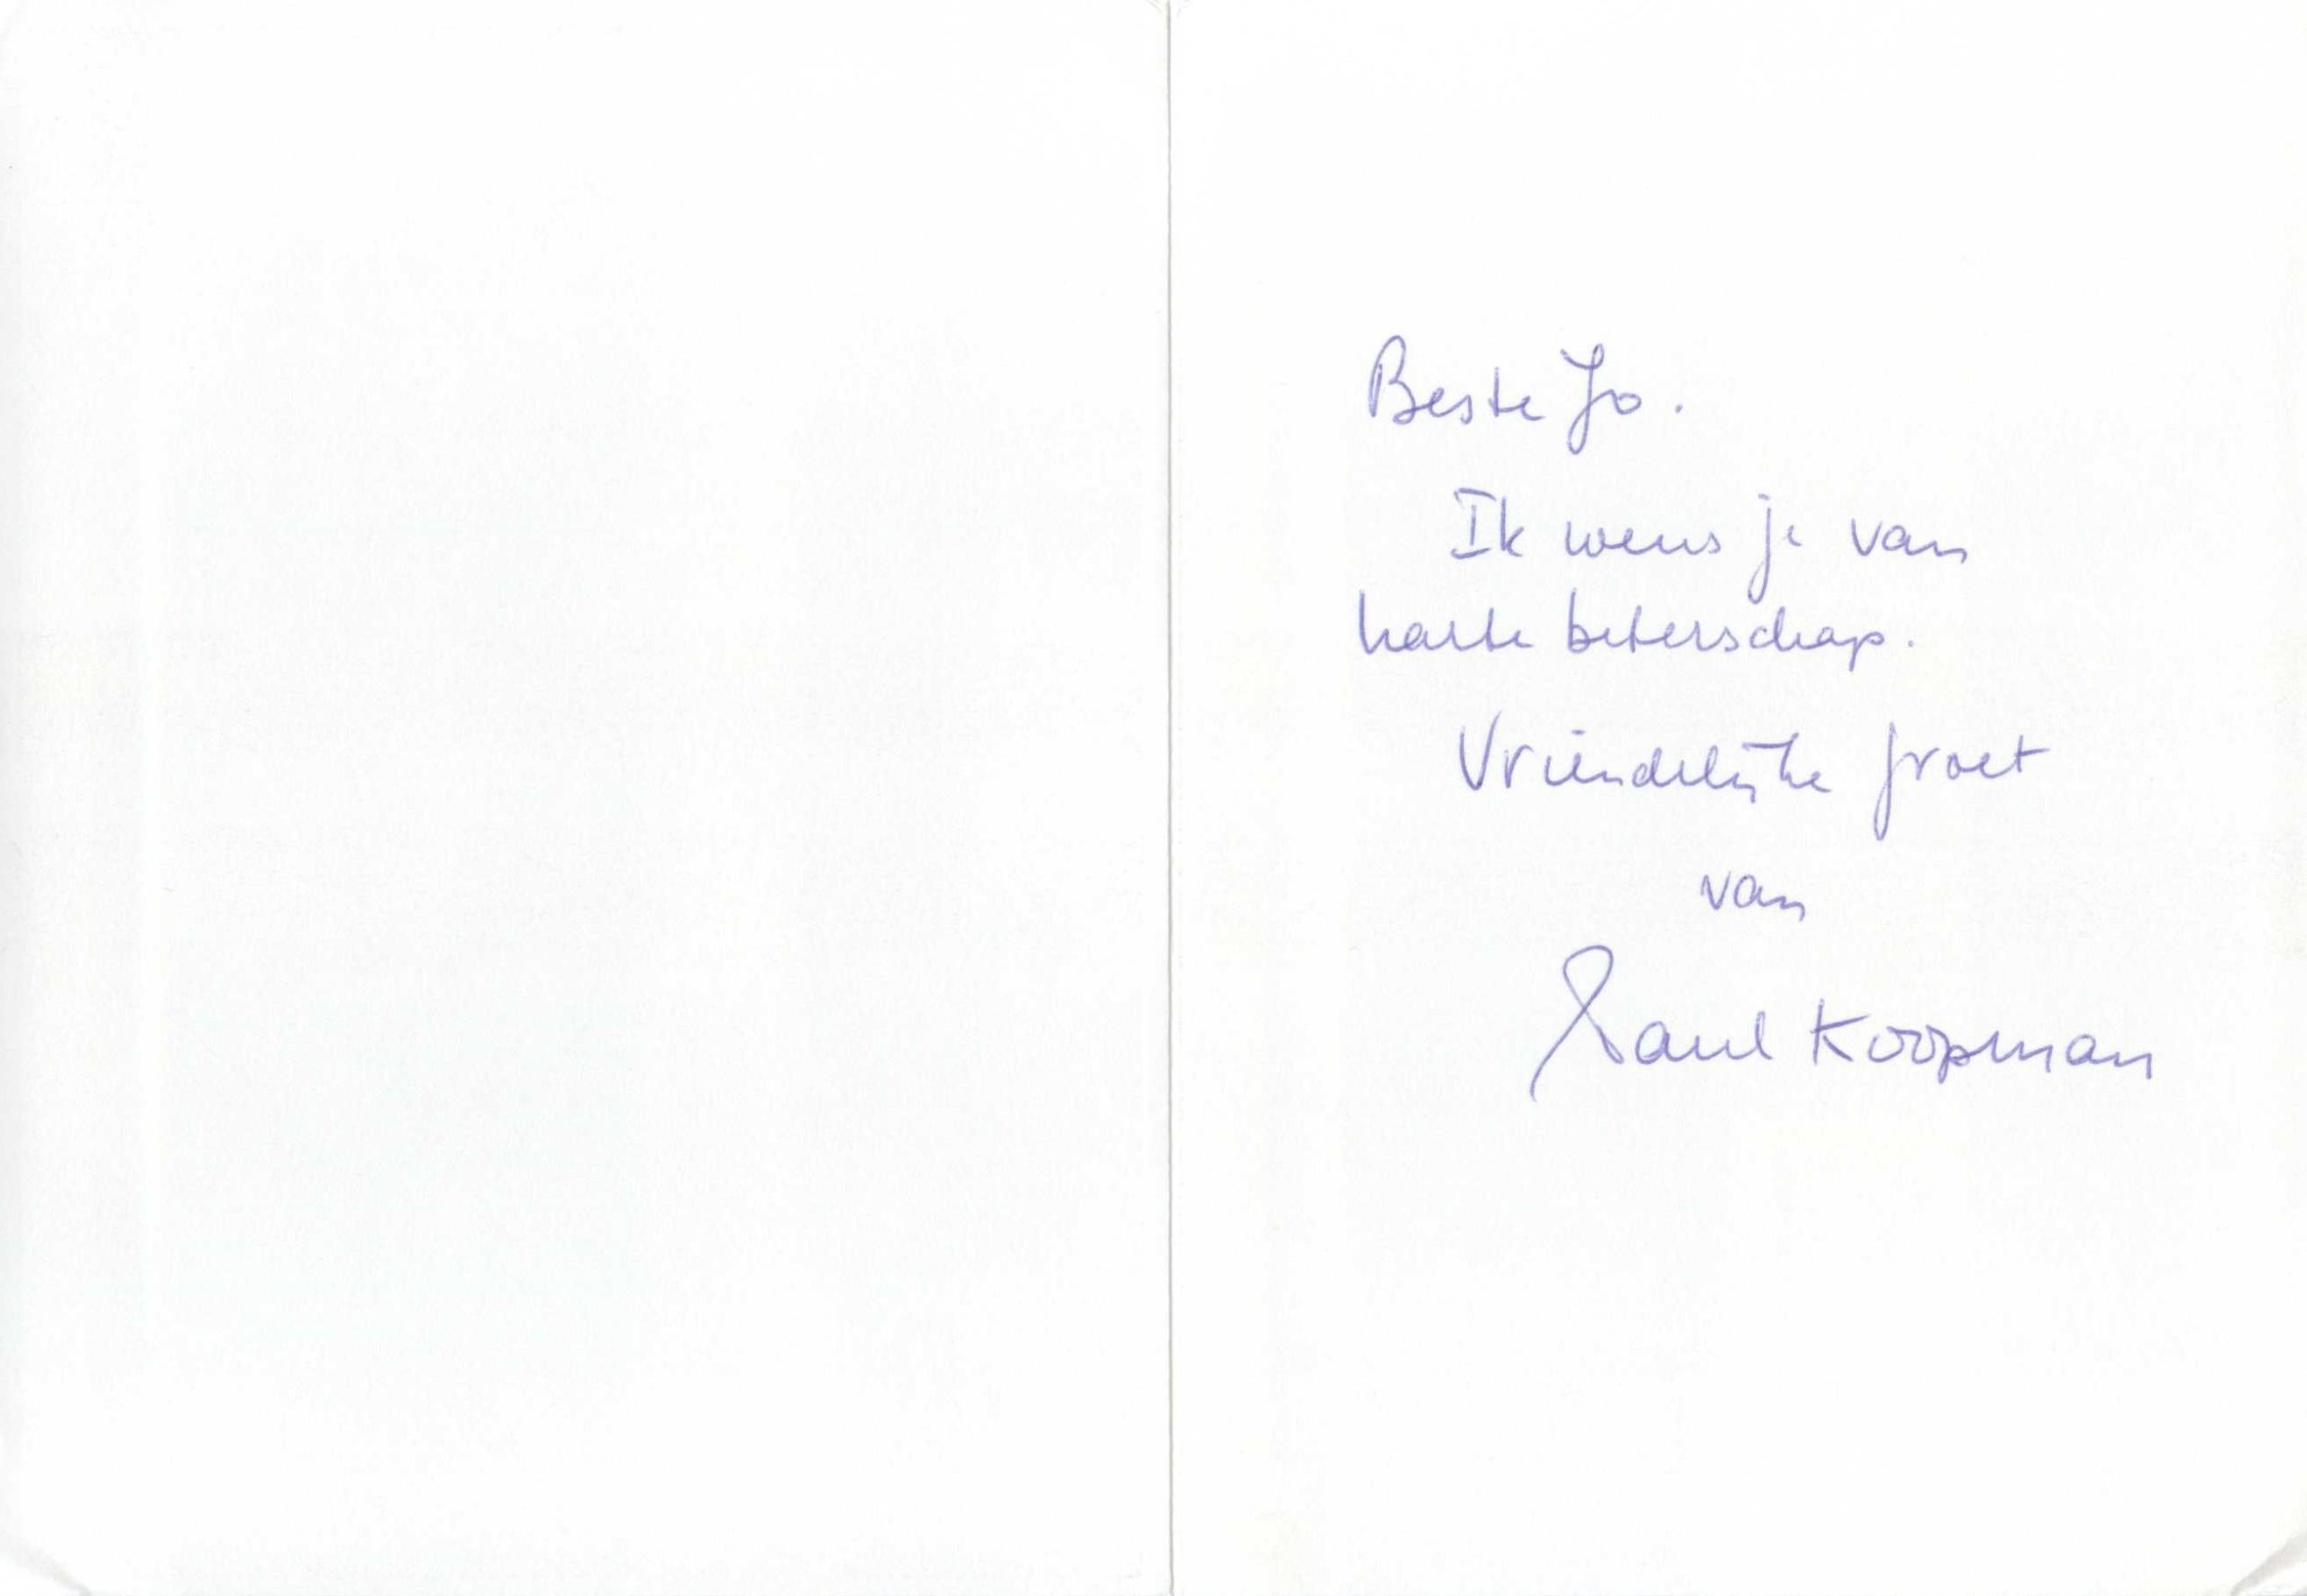 Beste Jo.
Ik wens je van
harte beterschap.
Vriendelijke groet
van
Saul Koopman